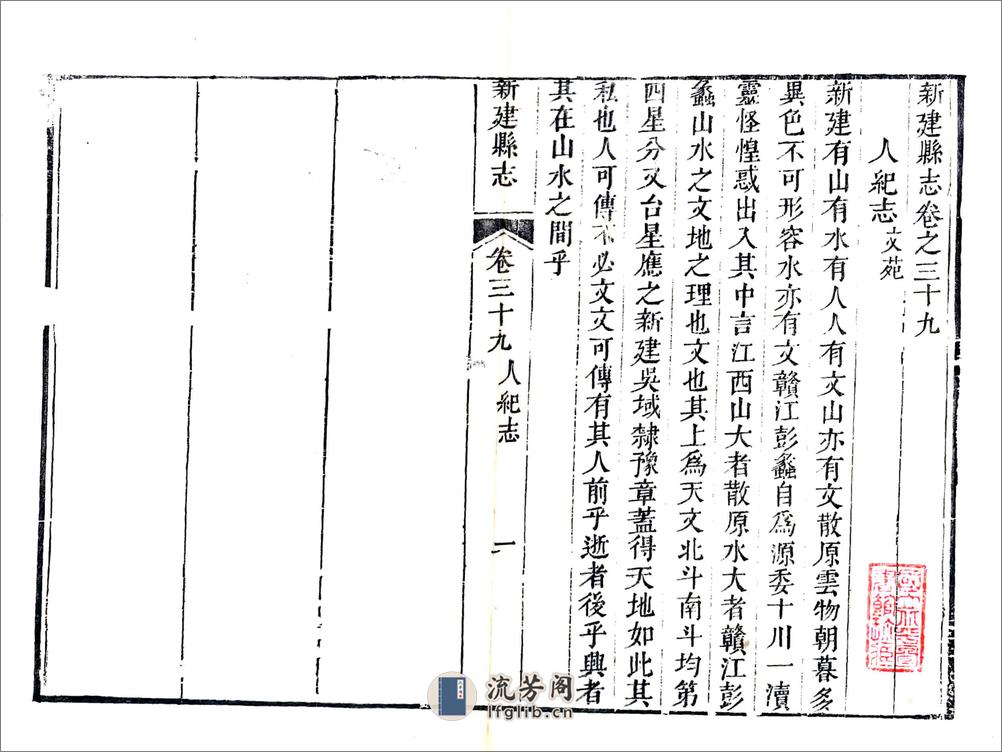 新建縣志卷之三十九
人紀志 文苑
新建有山有水有人人有文山亦有文散原雲物朝暮多
異色不可形容水亦有文贛江彭蠡自爲源委十川一瀆
靈怪惶惑出入其中言江西山大者散原水大者贛江彭
蠡山水之文地之理也文也其上爲天文北斗南斗均第
四星分又台星應之新建吳域隸豫章蓋得天地如此其
私也人可傳不必文文可傳有其人前乎逝者後乎興者
其在山水之間乎
新建縣志
卷三十九 人紀志
一
流芳阁
lfglib.cn